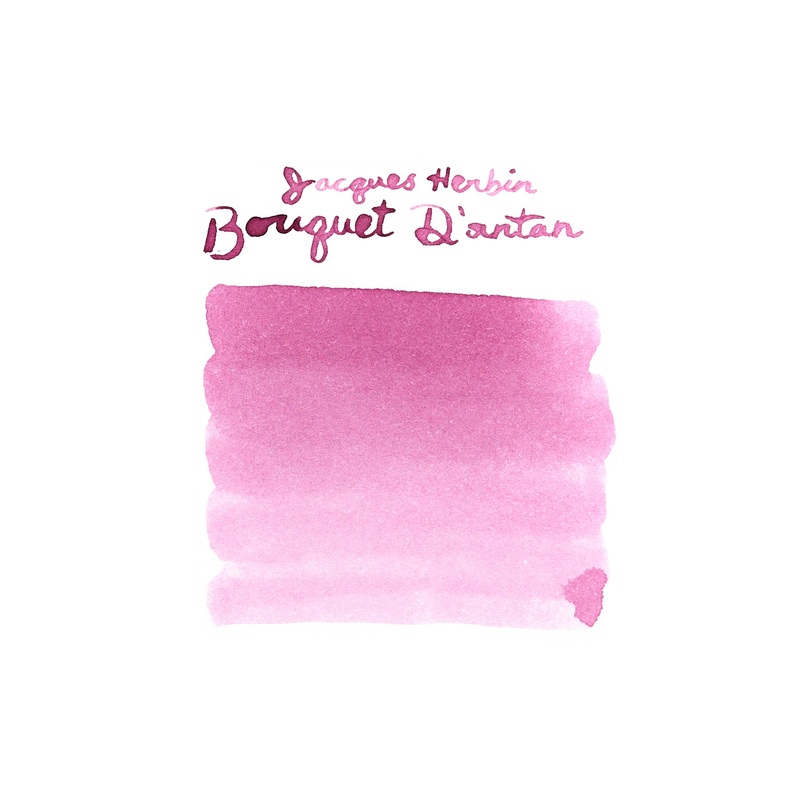 Jacques Herbin
Bouquet D'antan